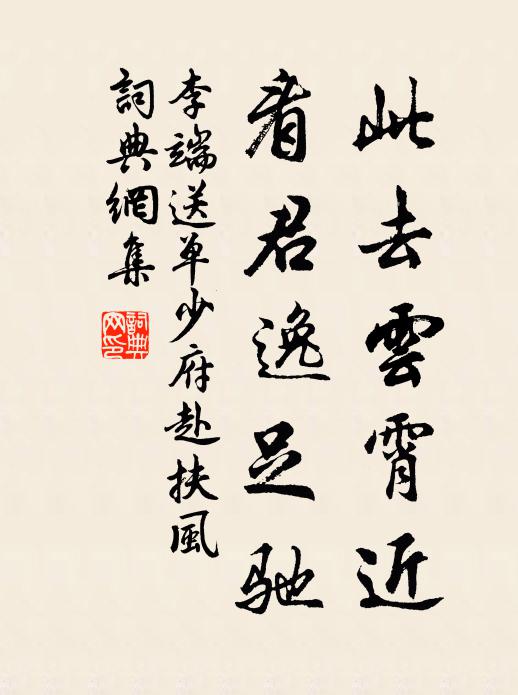 此去雲霄近
看君逸足馳
李端送单少府赴扶風
詞典網集
詞典網印